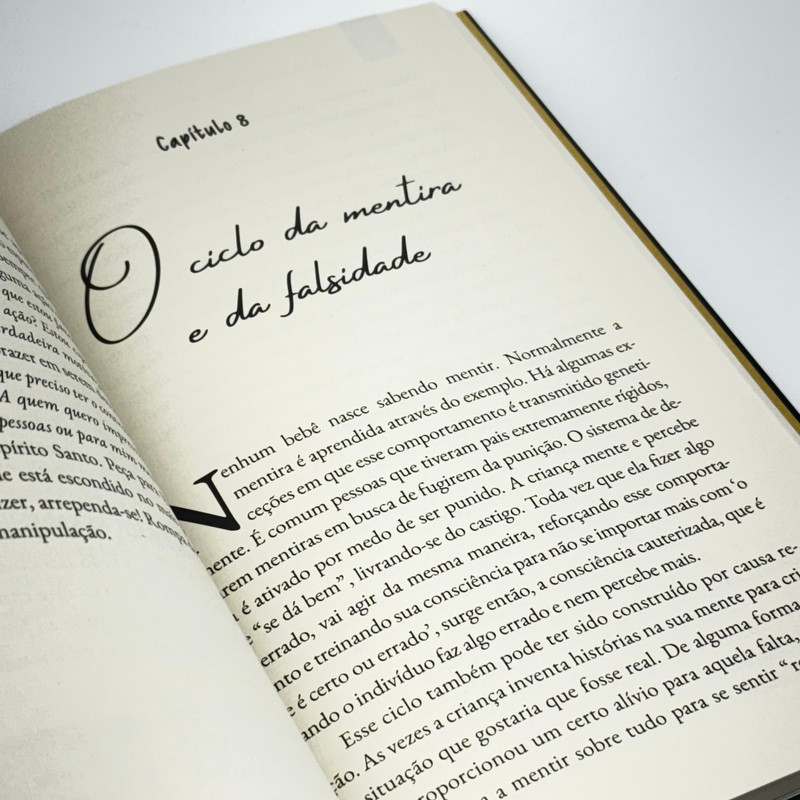 que estou
ação? Estou
rdadeira
razer em serem
que preciso ter o
A quem quero
pessoas ou para mim
Espírito Santo. Peça para
e está escondido no
zer, arrependa-se!
manipulação.
Capítulo 8
O ciclo da mentira
e da falsidade
Nenhum bebê nasce sabendo mentir. Normalmente a
mentira é aprendida através do exemplo. Há algumas ex-
ceções em que esse comportamento é transmitido geneti-
mente. É comum pessoas que tiveram pais extremamente rígidos,
rem mentiras em busca de fugirem da punição. O sistema de de-
é ativado por medo de ser punido. A criança mente e percebe
“se dá bem”, livrando-se do castigo. Toda vez que ela fizer algo
errado, vai agir da mesma maneira, reforçando esse comporta-
nto e treinando sua consciência para não se importar mais com ‘o
e é certo ou errado’, surge então, a consciência cauterizada, que é
ando o indivíduo faz algo errado e nem percebe mais.
Esse ciclo também pode ter sido construído por causa re-
ão. As vezes a criança inventa histórias na sua mente para cri
situação que gostaria que fosse real. De alguma forma
roporcionou um certo alívio para aquela falta,
a mentir sobre tudo para se sentir “